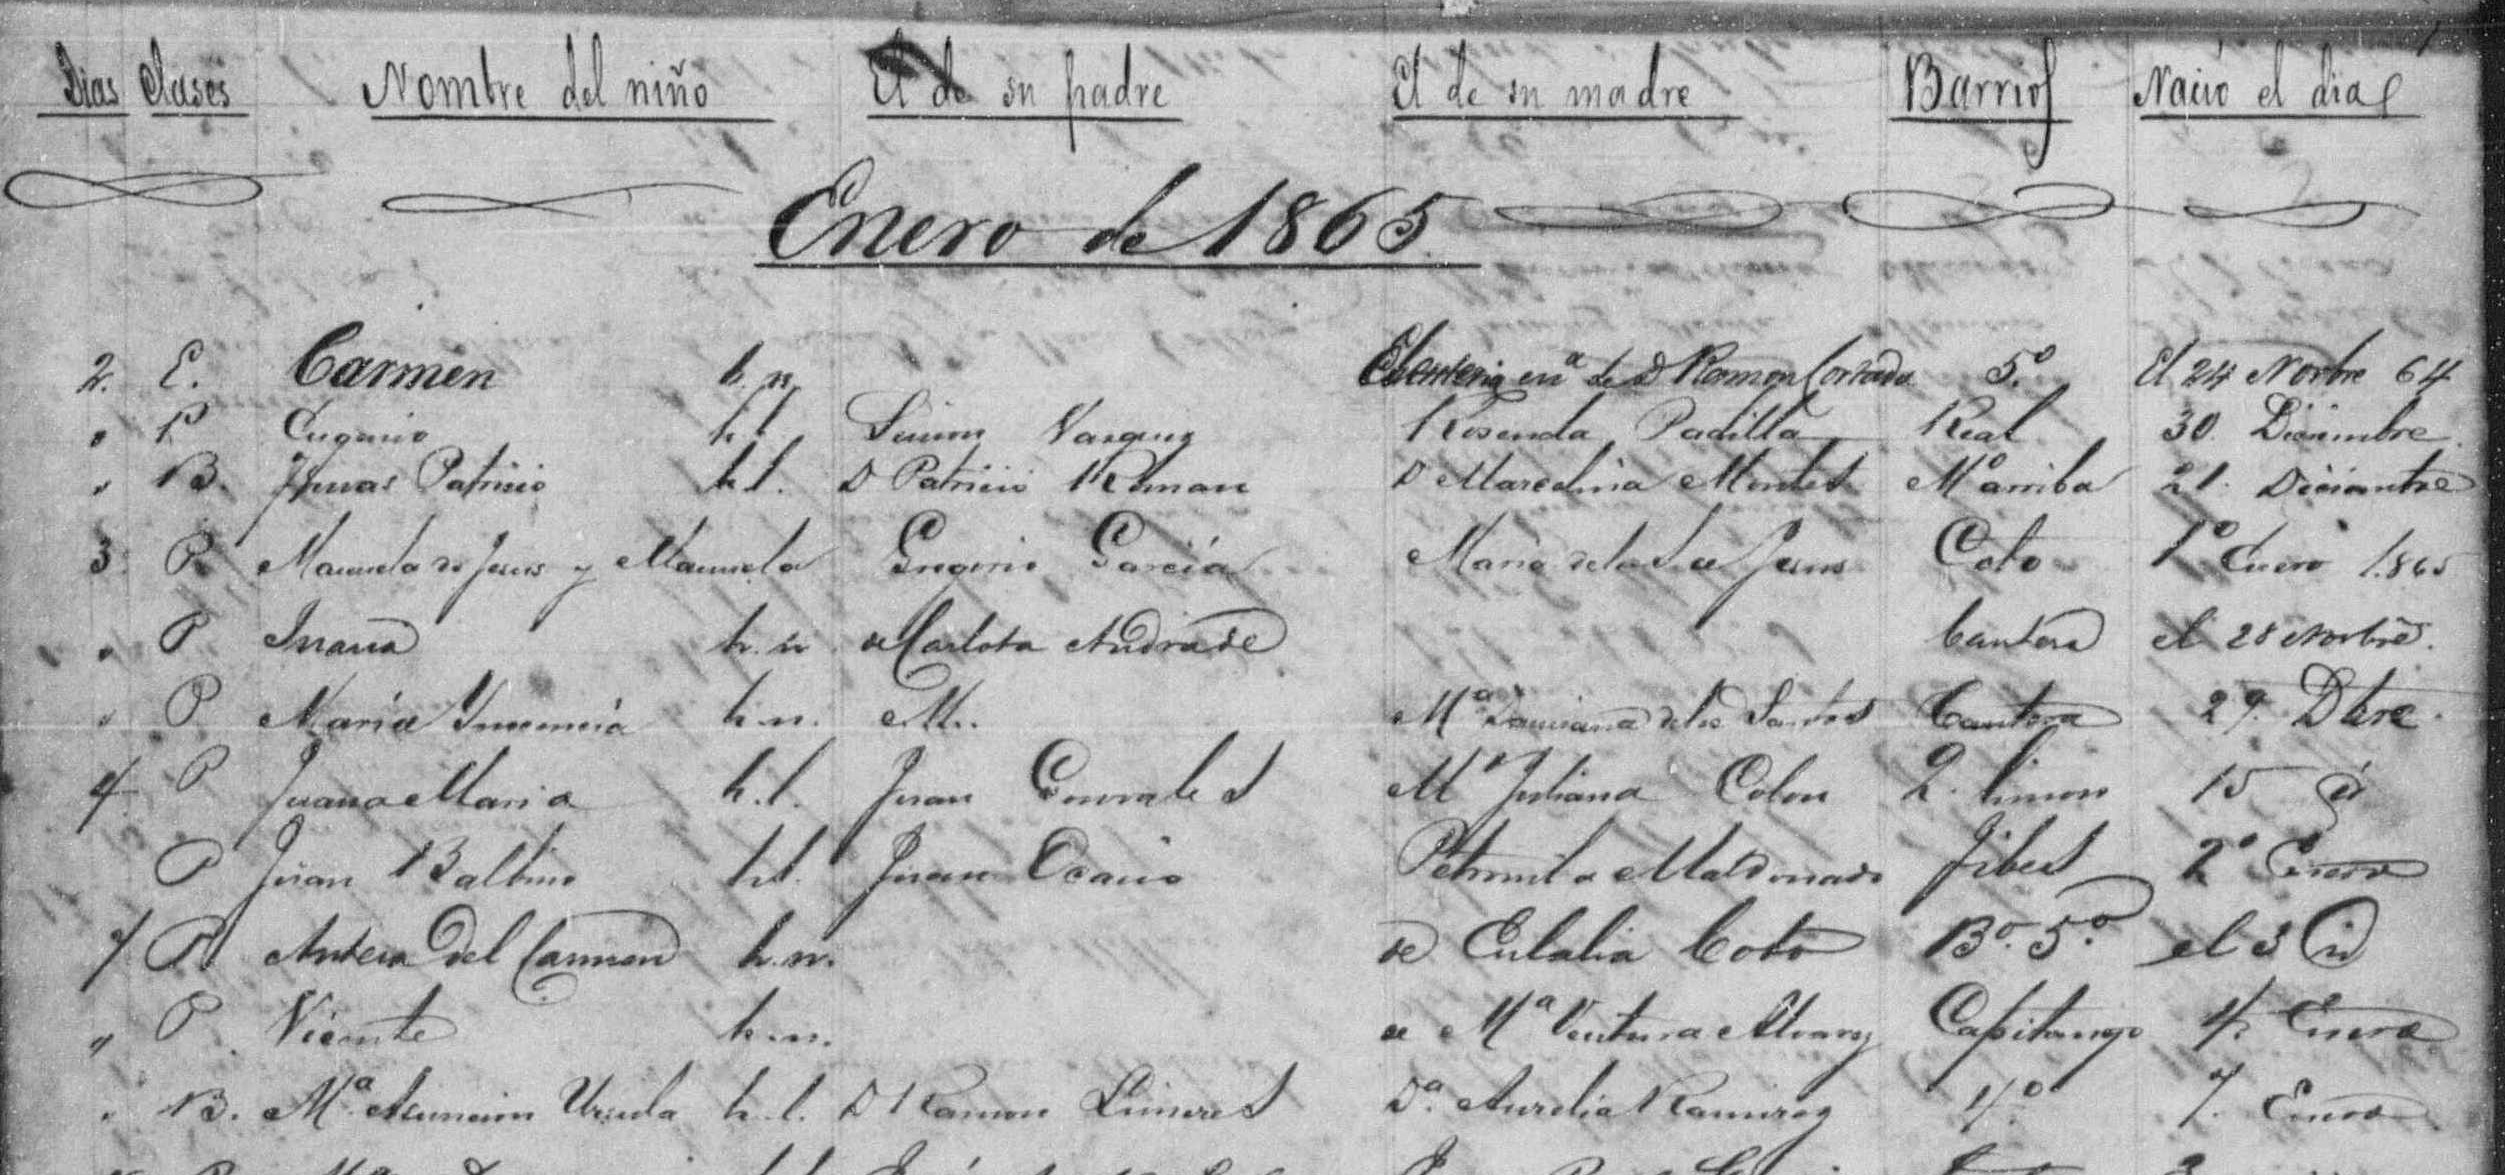 Dias Clases Nombre del niño El de su padre El de su madre Barrios Nació el dia
Enero de 1865
2. E. Carmen h. n. Eleuteria en.ª de D Ramon Cortada 5.º El 24 Novbre 64
" P Eugenio h. l. Simon Vazquez Rosenda Padilla Real 30 Diciembre
" B. Tomas Patricio h. l. D Patricio Roman Dª Marcelina Montes Mº arriba 21. Diciembre
3 P Manuela de Jesus y Manuela Gregorio García Maria de la Luz Jesus Coto 1º Enero 1865
" P Juana h. n de Carlota Andrade Cantera el 28 Novbre.
" P Maria Inocencia h. n. Mª Damiana de los Santos Cantera 29. Dbre.
4 P Juana Maria h. l. Juan Gonzales Mª Juliana Colon R. limon 15 id
P Juan Balbino h. l. Juan Ocasio Petronila Maldonado Jibes 2º Enero
7 P Antera del Carmen h. n. de Eulalia Coto Bº. 5º. el 3 id
" P Vicente h. n. de Mª Ventura Alvarez Capitanejo 4. Enero
" B. Mª Asuncion Ursula h. l. D Ramon Limeres Dª. Aurelia Ramirez 4.º 7. Enero